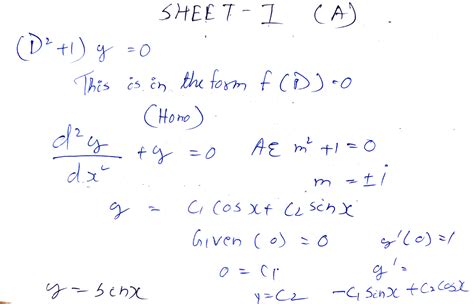 SHEET - I (A)
(D² + 1) y = 0
This is in the form f (D) = 0
(Homo)
d²y/dx² + y = 0   AE m² + 1 = 0
m = ± i
y = C₁ cos x + C₂ sin x
Given (0) = 0   y'(0) = 1
0 = C₁   y' =
y = C₂   -C₁ sinx + C₂ cosx
y = sinx